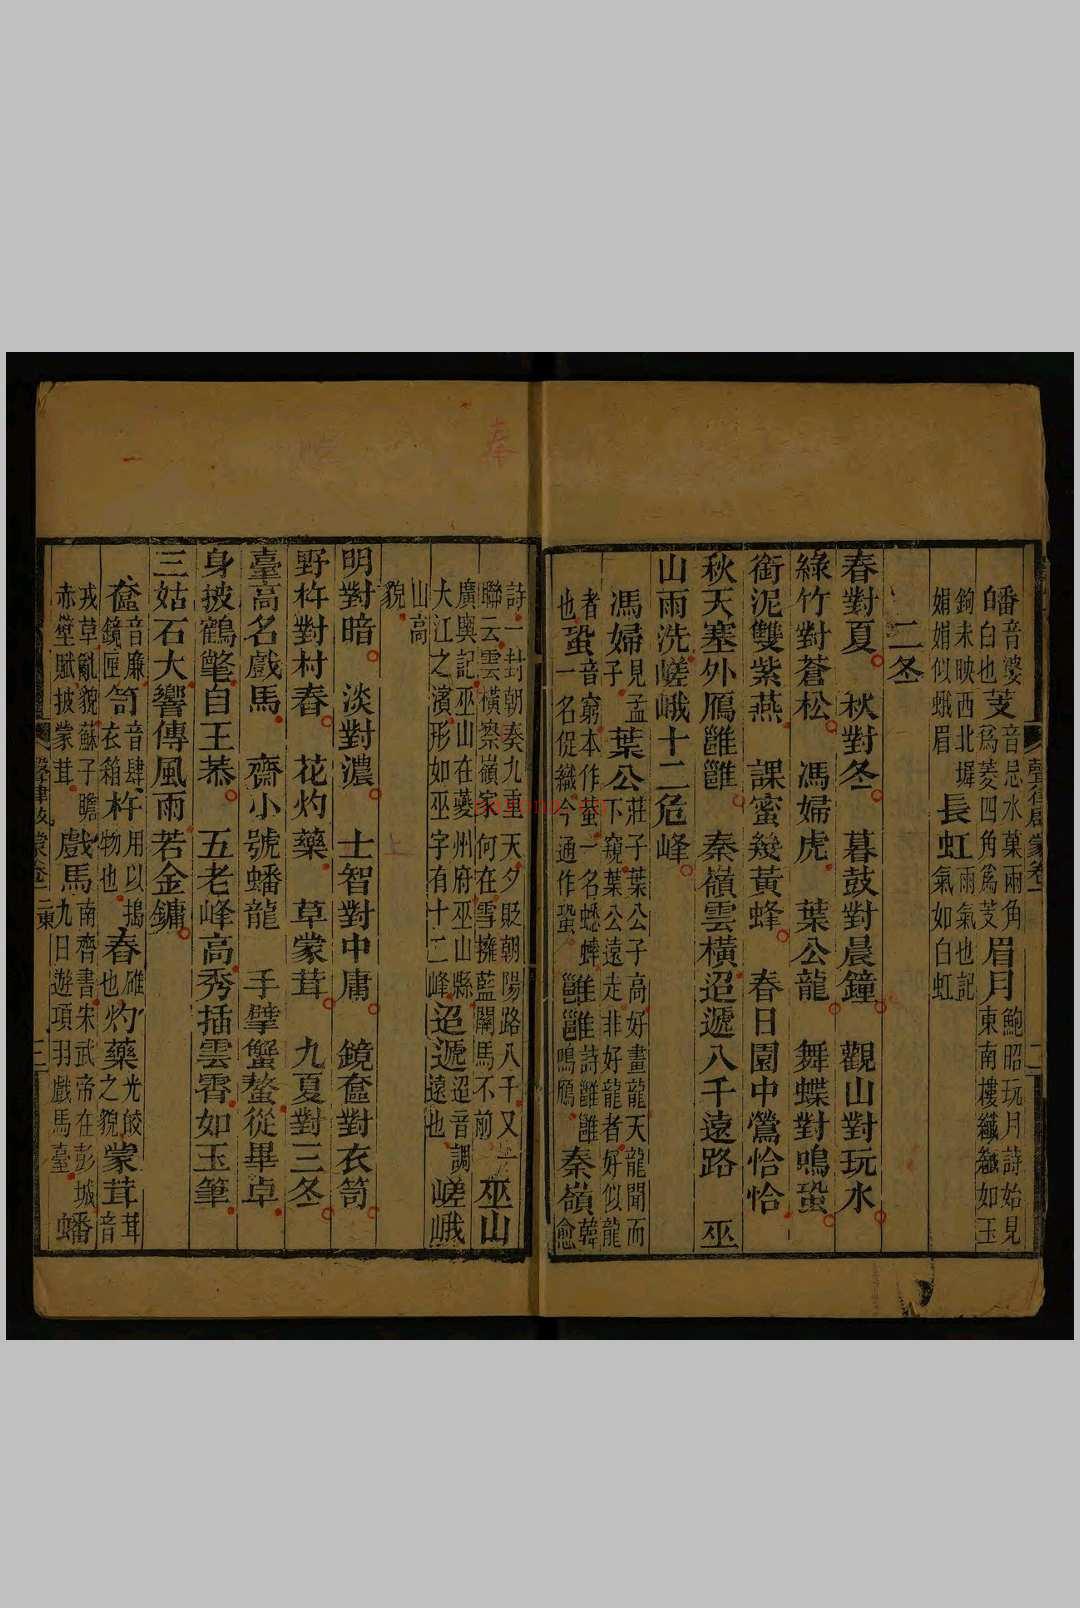 皤音婆白也芰音忌水菓兩角爲菱四角爲芰眉月鮑昭玩月詩始見東南樓纖纖如玉
鉤未映西北墀娟娟似蛾眉長虹雨氣也記氣如白虹
二冬
春對夏 秋對冬 暮鼓對晨鐘 觀山對玩水
綠竹對蒼松 馮婦虎 葉公龍 舞蝶對鳴蛩
銜泥雙紫燕 課蜜幾黃蜂 春日園中鶯恰恰
秋天塞外鴈雝雝 秦嶺雲橫迢遞八千遠路 巫
山雨洗嵯峨十二危峰
馮婦見孟子葉公莊子葉公子高好畫龍天龍聞而下窺葉公遠走非好龍者好似龍
者也蛩音窮本作蛬一名蟋蟀一名促織今通作蛩雝雝詩雝雝鳴鴈秦嶺韓愈
詩一封朝奏九重天夕貶朝陽路八千又一聯云雲橫秦嶺家何在雪擁藍關馬不前巫山
廣輿記巫山在夔州府巫山縣大江之濱形如巫字有十二峰迢遞迢音調遠也嵯峨
山高貌
明對暗 淡對濃 士智對中庸 鏡奩對衣笥
野杵對村舂 花灼藥 草蒙茸 九夏對三冬
臺高名戲馬 齋小號蟠龍 手擘蟹螯從畢卓
身披鶴氅自王恭 五老峰高秀插雲霄如玉筆
三姑石大響傳風雨若金鏞
奩音廉鏡匣笥音肆衣箱杵用以搗物也舂碓也灼藥光皎之貌蒙茸茸音
戎草亂貌蘇子瞻赤壁賦披蒙茸戲馬南齊書宋武帝在彭城九日遊項羽戲馬臺蟠
聲律啟蒙卷一
二東